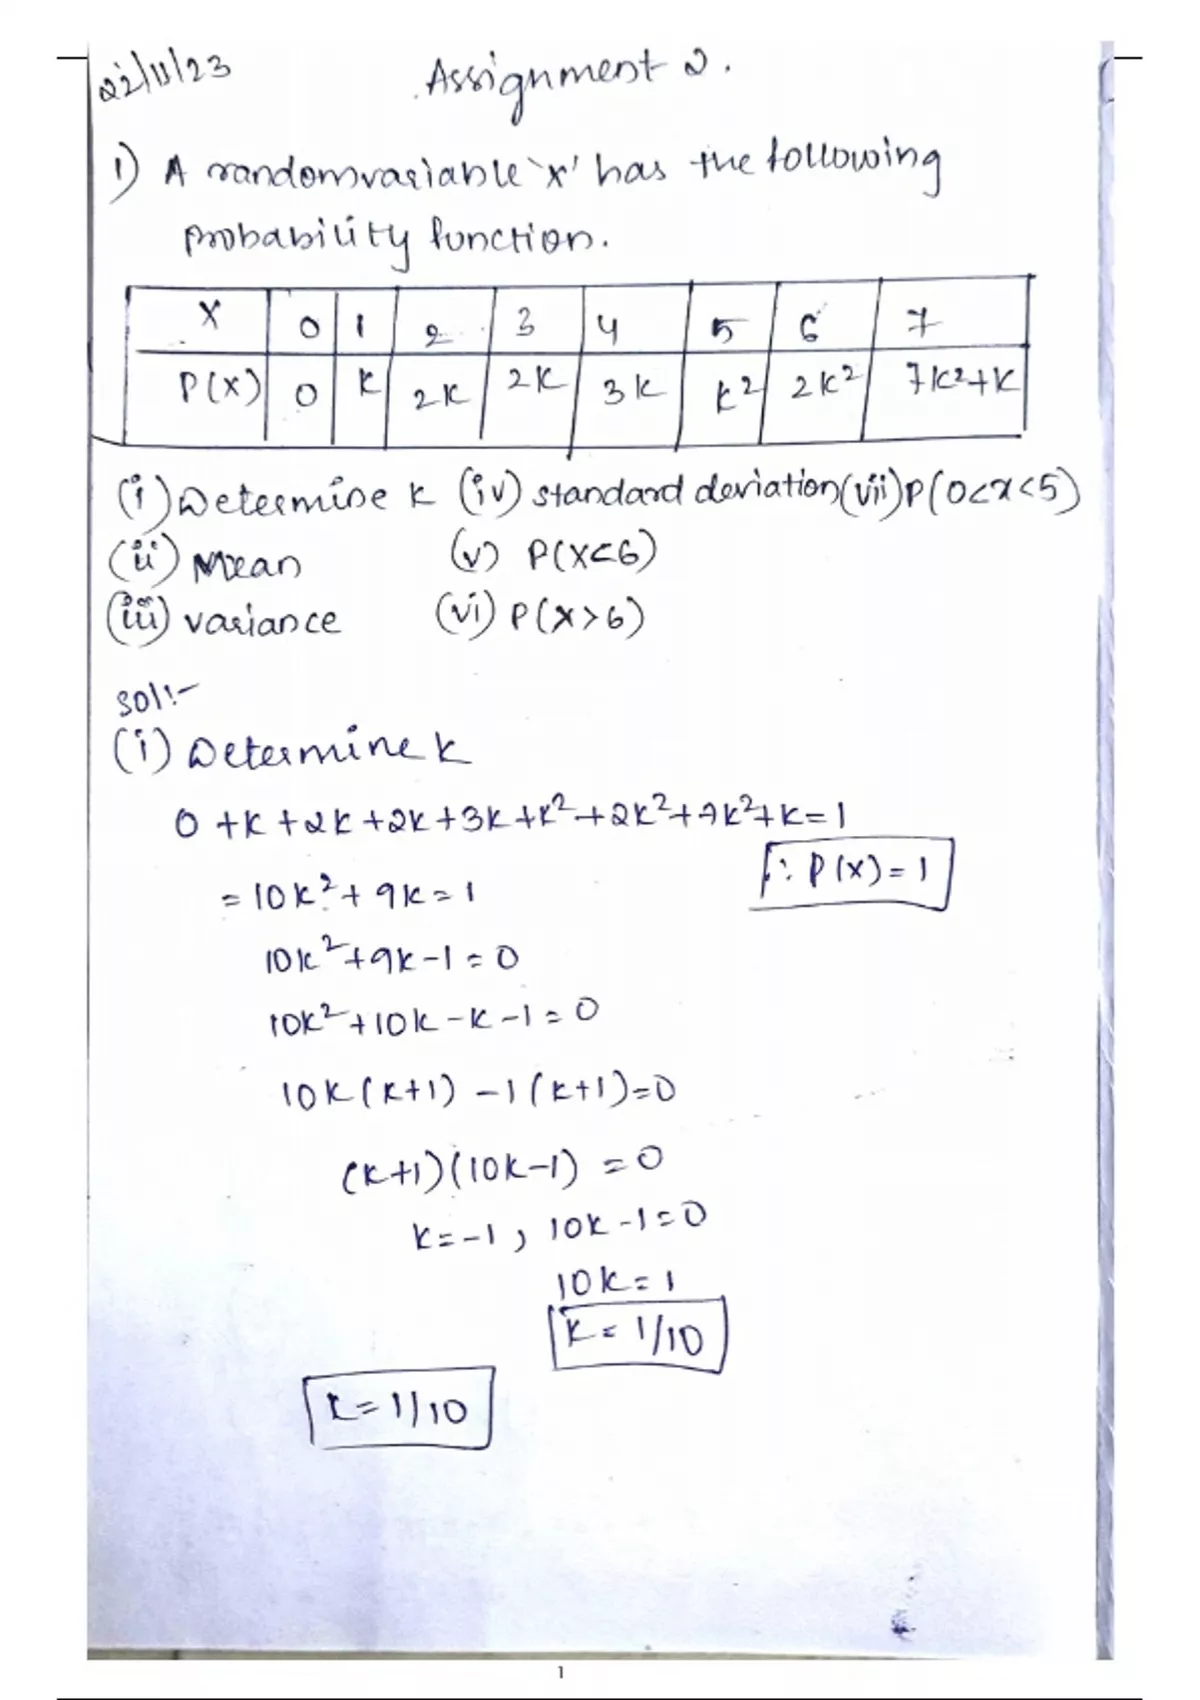 22/11/23 Assignment 2.
1) A random variable `x' has the following
probability function.
X 0 1 2 3 4 5 6 7
P(X) 0 k 2k 2k 3k k² 2k² 7k²+k
(i) Determine k (iv) standard deviation (vii) P(0<x<5)
(ii) Mean (v) P(X<6)
(iii) variance (vi) P(x>6)
Sol:-
(i) Determine k
0+k+2k+2k+3k+k²+2k²+7k²+k=1
∵ P(x)=1
= 10k²+9k=1
10k²+9k-1=0
10k²+10k-k-1=0
10k(k+1)-1(k+1)=0
(k+1)(10k-1)=0
k=-1, 10k-1=0
10k=1
k=1/10
k=1/10
1